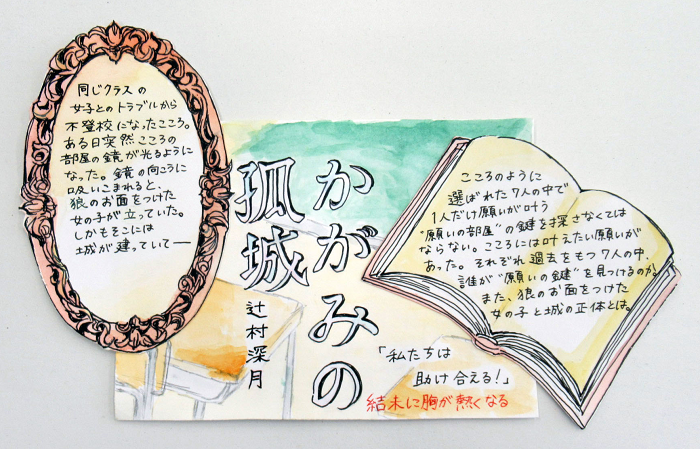 同じクラスの
女子とのトラブルから
不登校になったこころ。
ある日突然こころの
部屋の鏡が光るように
なった。鏡の向こうに
吸いこまれると、
狼のお面をつけた
女の子が立っていた。
しかもそこには
城が建っていて──
かがみの
孤城
辻村深月
こころのように
選ばれた7人の中で
1人だけ願いが叶う
"願いの部屋"の鍵を探さなくては
ならない。こころには叶えたい願いが
あった。それぞれ過去をもつ7人の中、
誰が"願いの鍵"を見つけるのか。
また、狼のお面をつけた
女の子と城の正体とは。
「私たちは
助け合える!」
結末に胸が熱くなる